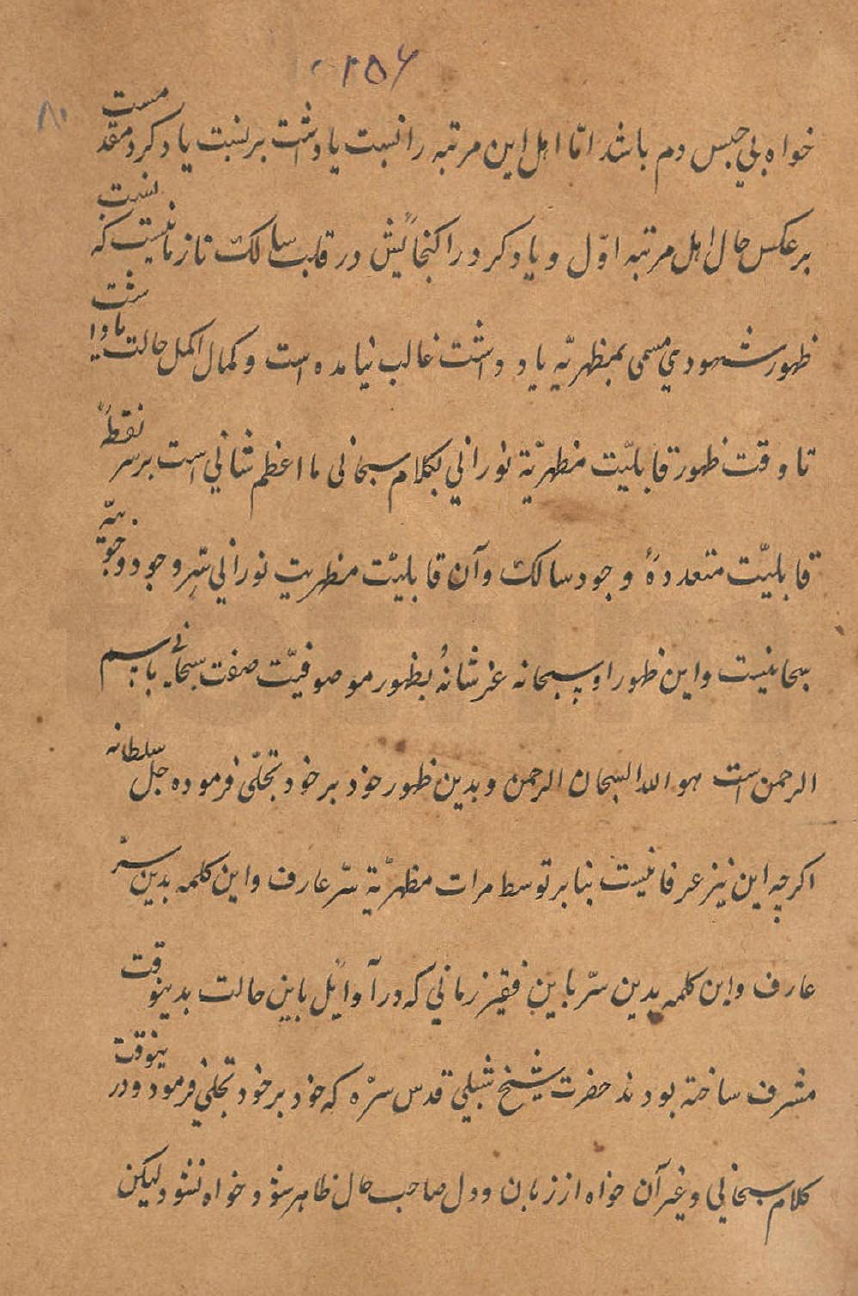 ۲۵۶
۸۱
خواه بی حبس دم باشد امّا اهل این مرتبه را نسبت یادداشت بر نسبت یاد کرد مقدمست
بر عکس حال اهل مرتبه اوّل و یاد کرد را کنجایش در قلب سالک تا زمانیست که نسبت
ظهور شهودی مسمی بمظهریّه یاد داشت غالب نیامده است و کمال اکمل حالت
تا وقت ظهور قابلیّت مظهریّة نورانی بکلام سبحانی ما اعظم شانی است بر سر نقطهٔ
قابلیّت متعددهٔ وجود سالک و آن قابلیّت مظهریت نورانی سّر وجود
سبحانیست و این ظهور او سبحانه عز شانهُ بظهور موصوفیّت صفت سبحانی باسم
الرحمن است هو الله السبحان الرحمن و بدین ظهور خود بر خود تجلّی فرموده جلّ سلطانه
اکرچه این نیز عرفانیست بنا بر توسط مرات مظهریّة سّر عارف و این کلمه بدین سرّ
عارف و این کلمه بدین سرّ باین فقیر زمانی که در آوایٔل باین حالت بدینوقت
مشرف ساخته بودند حضرت شیخ شبلی قدس سرّه که خود بر خود تجلی فرمود و در ینوقت
کلام سبحانی و غیر آن خواه از زبان و دل صاحب حال ظاهر شود خواه نشود لیکن